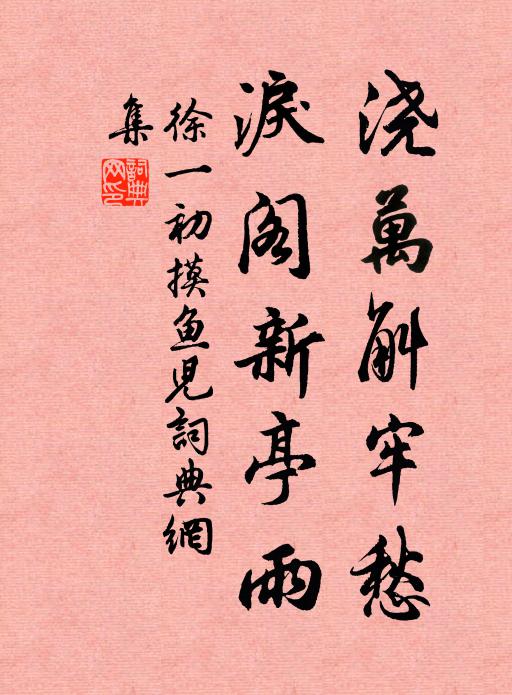 浇萬斛牢愁
淚阁新亭雨
徐一初摸鱼児詞典網
集
詞典網印